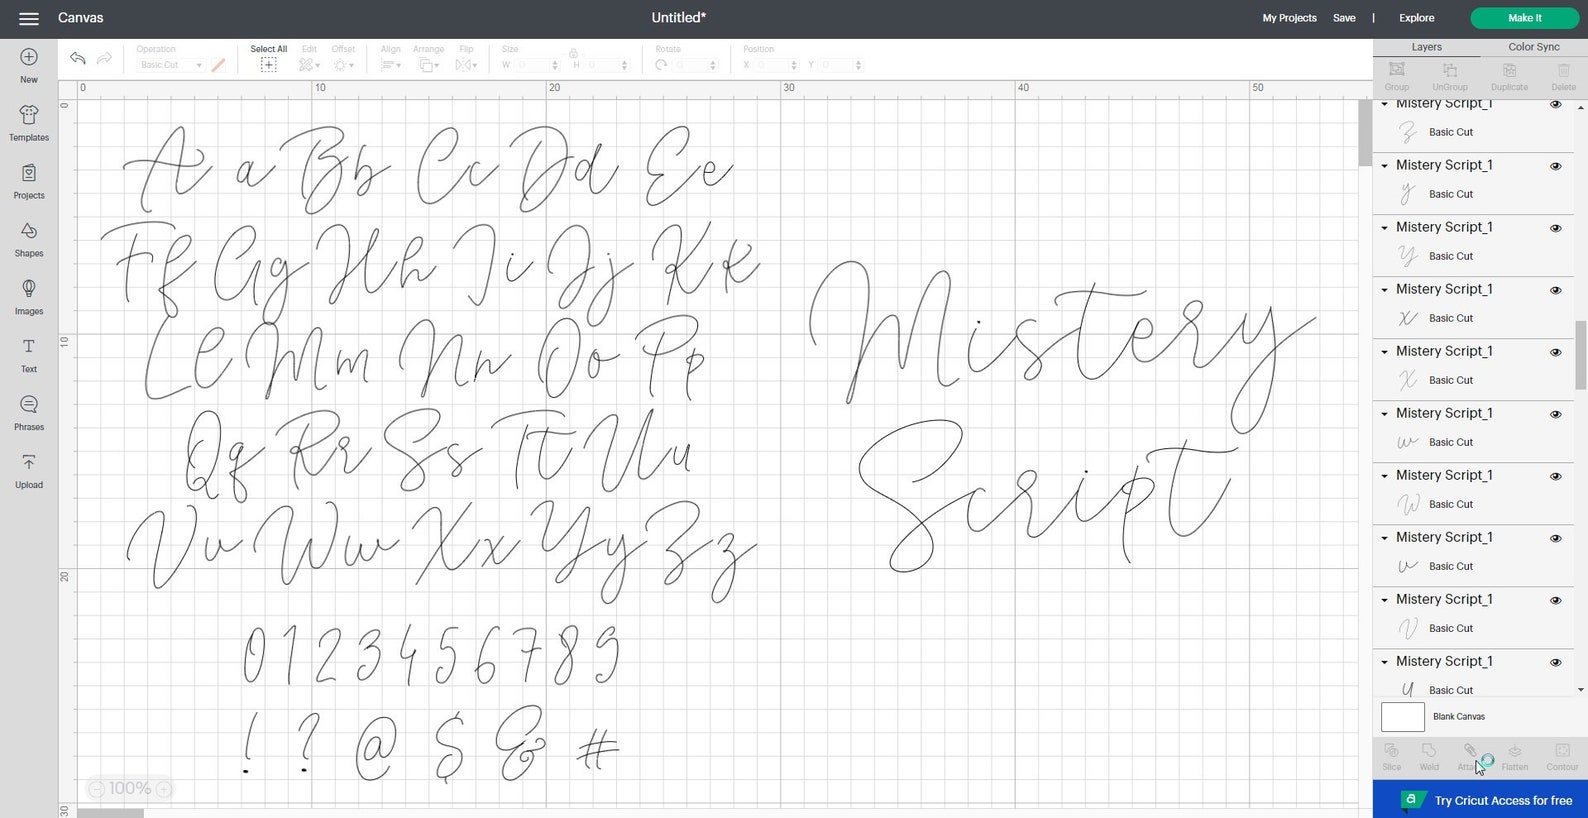 Canvas
Untitled*
My Projects
Save
|
Explore
Make It
New
Templates
Projects
Shapes
Images
Text
Phrases
Upload
Operation
Basic Cut
Select All
Edit
Offset
Align
Arrange
Flip
Size
W 0
H 0
Rotate
0
Position
X 0
Y 0
0 10 20 30 40 50
0
10
20
30
A a B b C c D d E e
F f G g H h I i J j K k
L l M m N n O o P p
Q q R r S s T t U u
V v W w X x Y y Z z
0 1 2 3 4 5 6 7 8 9
! ? @ $ & #
Mistery
Script
100%
Layers
Color Sync
Group
UnGroup
Duplicate
Delete
Mistery Script_1
z Basic Cut
Mistery Script_1
y Basic Cut
Mistery Script_1
Y Basic Cut
Mistery Script_1
x Basic Cut
Mistery Script_1
X Basic Cut
Mistery Script_1
w Basic Cut
Mistery Script_1
W Basic Cut
Mistery Script_1
v Basic Cut
Mistery Script_1
V Basic Cut
Mistery Script_1
u Basic Cut
Blank Canvas
Slice
Weld
Flatten
Contour
a
Try Cricut Access for free